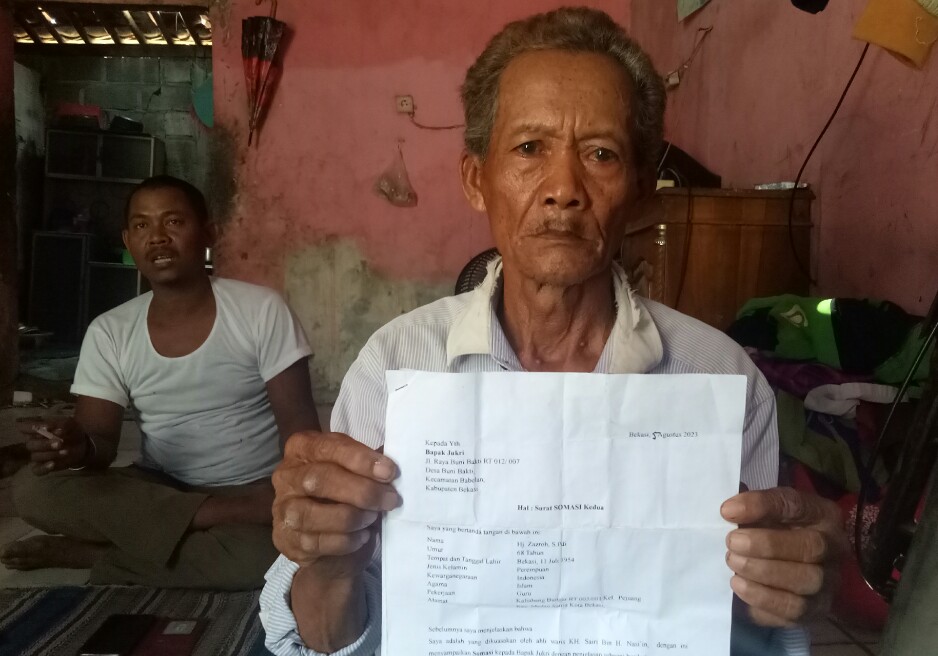 Bekasi, 5 Agustus 2023
Kepada Yth
Bapak Jukri
Jl. Raya Buni Bakti RT 012/ 007
Desa Buni Bakti,
Kecamatan Babelan,
Kabupaten Bekasi
Hal : Surat SOMASI Kedua
Saya yang bertanda tangan di bawah ini
Nama Hj. Zaaroh, S.Pdi
Umur 68 Tahun
Tempat dan Tanggal Lahir Bekasi, 11 Juli 1954
Jenis Kelamin Perempuan
Kewarganegaraan Indonesia
Agama Islam
Pekerjaan Guru
Alamat RT 002/001 Kel.
Kota Bekasi
Sebelumnya saya menjelaskan bahwa
Saya adalah yang dikuasakan oleh ahli waris KH. Sairi Bin H. Nasi'in, dengan ini
menyampaikan Somasi kepada Bapak Jukri dengan penjelasan sebagai